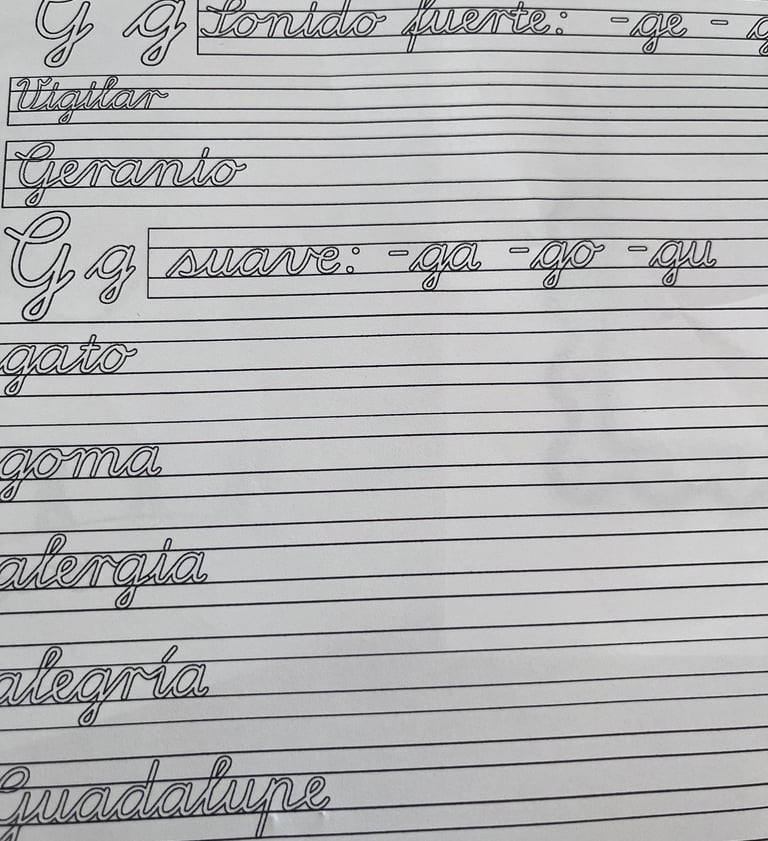 G g Sonido fuerte: -ge -
Vigilar
Geranio
G g suave: -ga -go -gu
gato
goma
alergia
alegría
Guadalupe